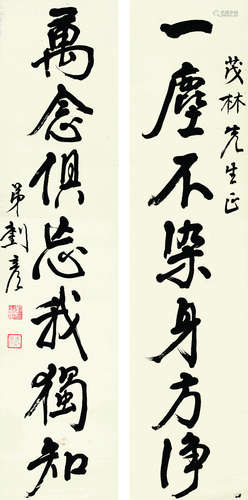 茂林先生正
一塵不染身方净
萬念俱忘我獨知
弟劉彦